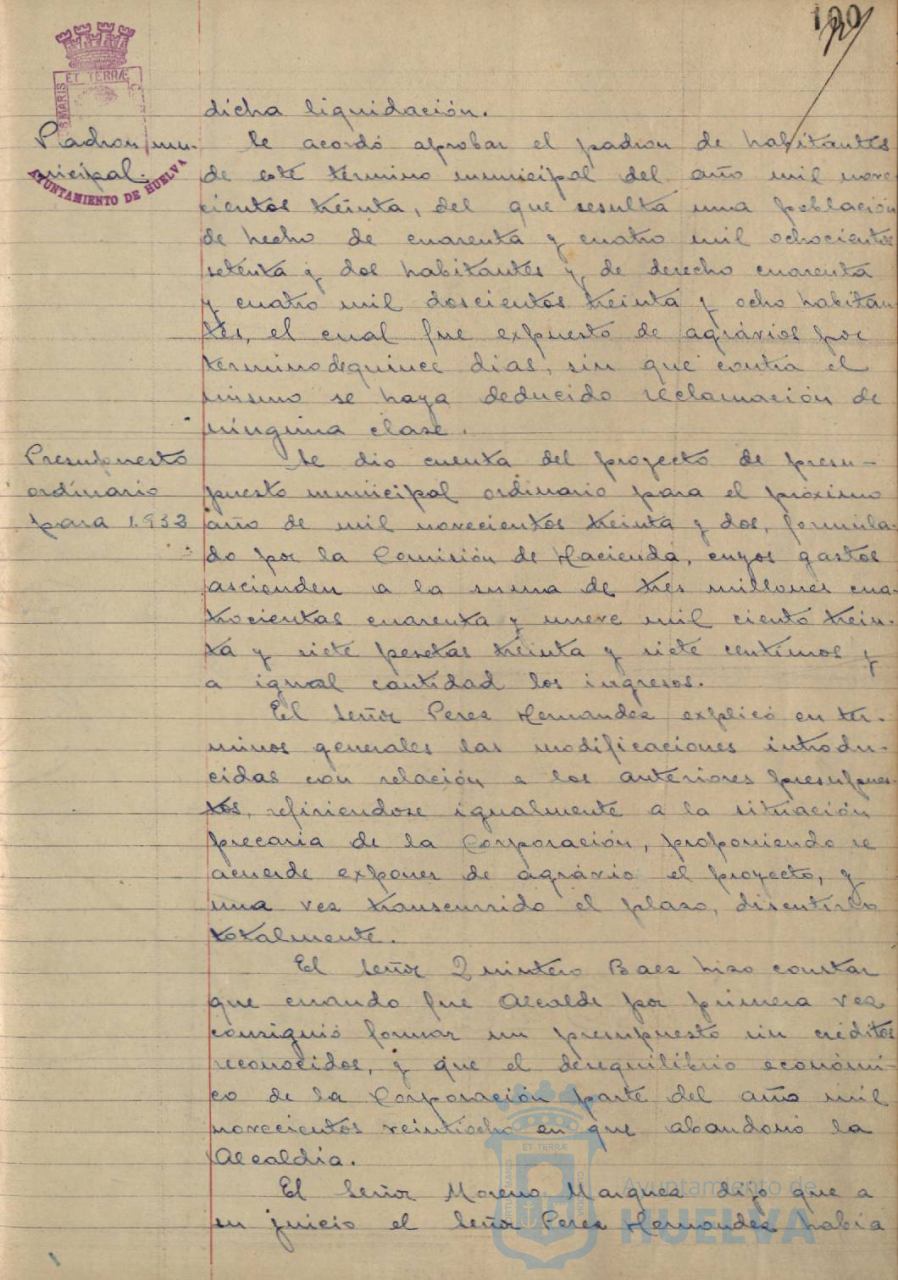 100
dicha liquidación.
Padron mu-
nicipal.
ET TERRÆ
MARIS
AYUNTAMIENTO DE HUELVA
Se acordó aprobar el padron de habitantes
de este termino municipal del año mil nove-
cientos treinta, del que resulta una población
de hecho de cuarenta y cuatro mil ochocientos
setenta y dos habitantes y de derecho cuarenta
y cuatro mil doscientos treinta y ocho habitan-
tes, el cual fue expuesto de agrávios por
termino de quince dias, sin que contra el
mismo se haya deducido reclamación de
ninguna clase.
Presupuesto
ordinario
para 1.932
Se dio cuenta del proyecto de presu-
puesto municipal ordinario para el próximo
año de mil novecientos treinta y dos, formula-
do por la Comisión de Hacienda, cuyos gastos
ascienden a la suma de tres millones cua-
trocientas cuarenta y nueve mil ciento trein-
ta y siete pesetas treinta y siete centimos y
a igual cantidad los ingresos.
El Señor Perez Hernandez explicó en ter-
minos generales las modificaciones introdu-
cidas con relación a los anteriores presupues-
tos, refiriendose igualmente a la situación
precaria de la Corporación, proponiendo se
acuerde exponer de agrávio el proyecto, y
una vez transcurrido el plazo, discutirlo
totalmente.
El Señor Quintero Baez hizo constar
que cuando fue Alcalde por primera vez
consiguió formar un presupuesto sin créditos
reconocidos, y que el desequilibrio económi-
co de la Corporación parte del año mil
novecientos veintiocho en que abandonó la
Alcaldía.
El Señor Moreno Marquez dijo que a
su juicio el Señor Perez Hernandez había
ET TERRÆ
Ayuntamiento de
HUELVA